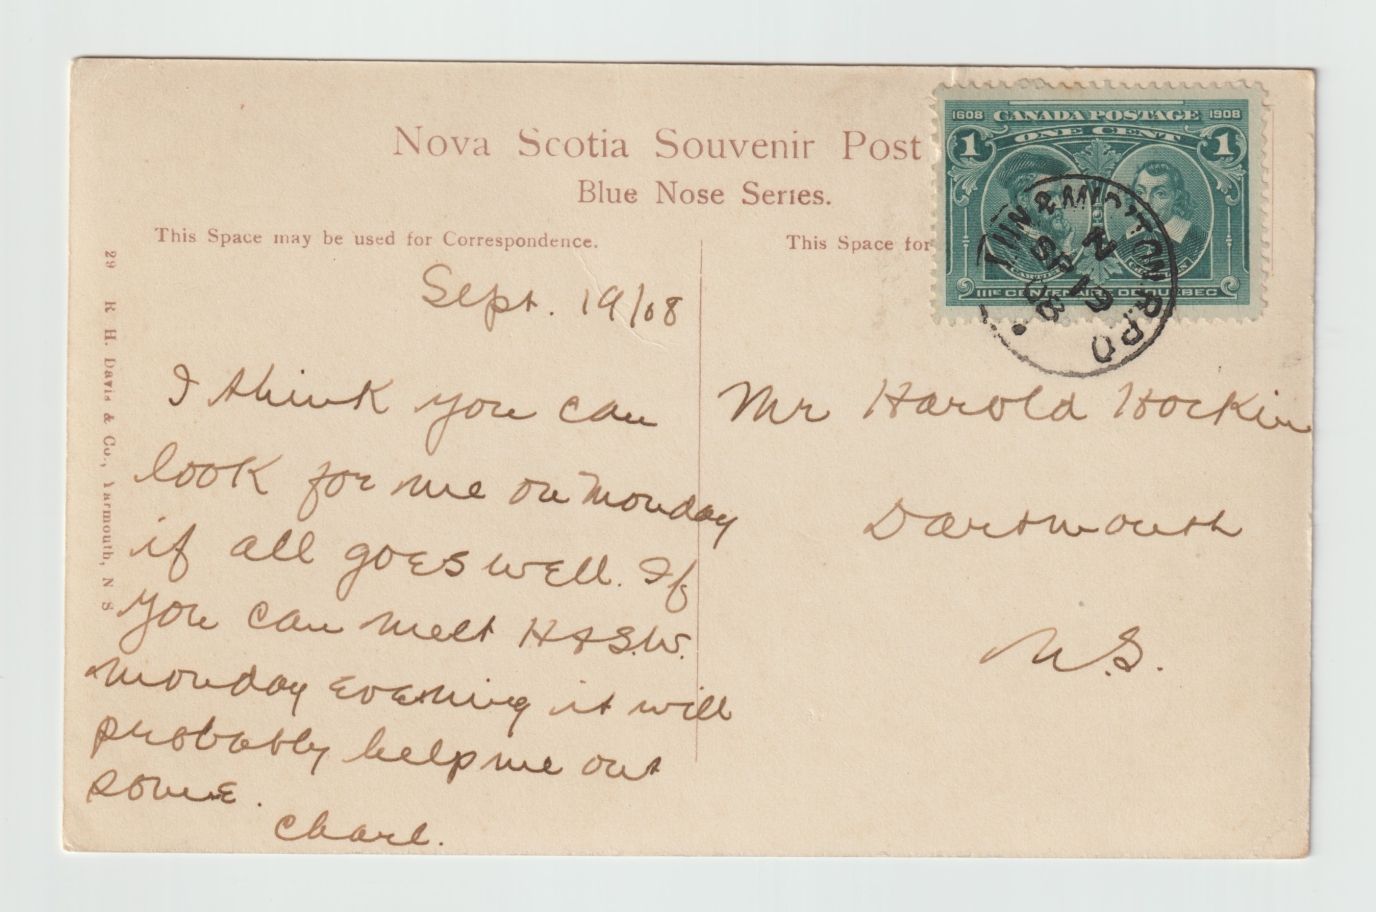 Nova Scotia Souvenir Post
Blue Nose Series.
This Space may be used for Correspondence.
This Space for
29 R. H. Davis & Co., Yarmouth, N S
1608 CANADA POSTAGE 1908
ONE CENT
1 1
CARTIER
IIIe CENTENAIRE DE QUEBEC
& MIDDTON R.P.O
N
SP 19
08
Sept. 19/08
I think you can
look for me on Monday
if all goes well. If
you can meet H & S.W.
Monday evening it will
probably help me out
some.
Charl.
Mr Harold Hockin
Dartmouth
N.S.